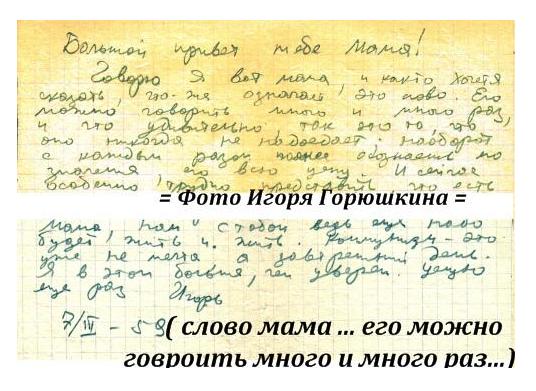 Большой привет тебе Мама!
Говорю Я вот мама и как то хочется
сказать, что-же означает, это слово. Его
можно говорить много и много раз,
и что удивительно, так это то, что,
оно никогда не надоедает. наоборот
с каждым разом полнее осознаешь
значения его всю цену. И сейчас
особенно, трудно представить что есть
= Фото Игоря Горюшкина =
мама, нам с тобой ведь еще надо
будет, жить и. жить. Коммунизм - это
уже не мечта а завтрашний день.
Я в этом больше, чем уверен. целую
еще раз Игорь
7/III - 59
( слово мама ... его можно
говроить много и много раз...)